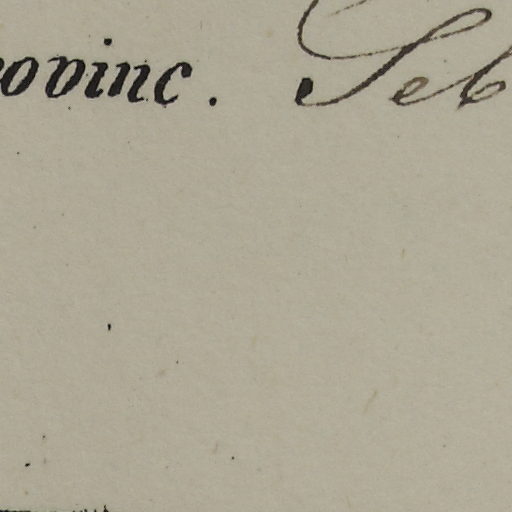 ovinc. Seb